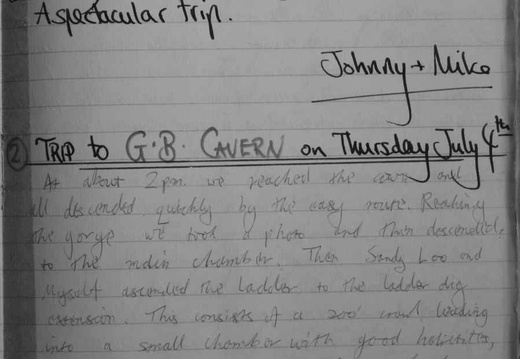 A spectacular trip.
Johnny + Mike
② TRIP to G.B. CAVERN on Thursday July 4th
At about 2pm. we reached the cave and
all descended quickly by the easy route. Reaching
the gorge we took a photo and then descended,
to the main chamber. Then Sandy Loo and
Myself ascended the ladder to the ladder dig
extension. This consists of a 200' crawl leading
into a small chamber with good helictites,